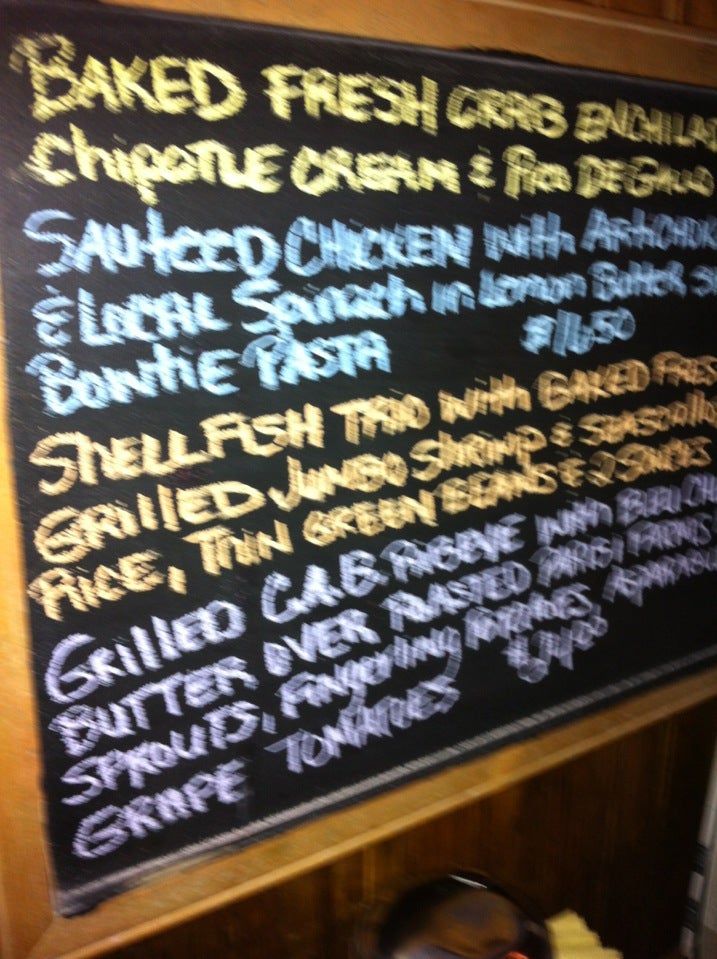 BAKED FRESH CRAB ENCHILA
CHIPOTLE CREAM & PICO DE GALLO
SAUTEED CHICKEN WITH ARTICHOK
& LOCAL SPINACH IN LEMON BUTTER
BOWTIE PASTA $16.50
SHELLFISH TRIO WITH BAKED FRES
GRILLED JUMBO SHRIMP & SEA SCALLO
RICE, THIN GREEN BEANS & 2 SAUCES
GRILLED C.A.B. WITH BLEU CH
BUTTER OVER ROASTED FARMS
SPROUTS, FINGERLING POTATOES, ASPARAGU
GRAPE TOMATOES